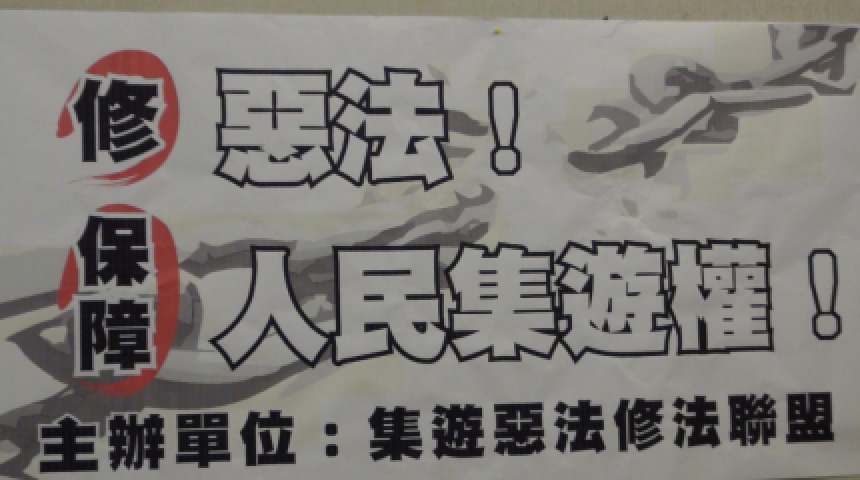 修惡法！
保障人民集遊權！
主辦單位：集遊惡法修法聯盟